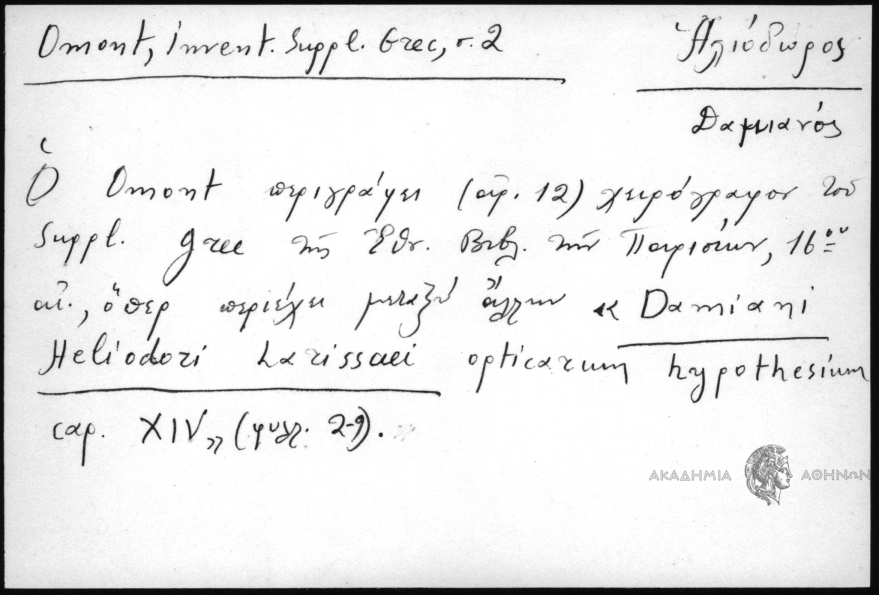 Omont, Invent. Suppl. Grec, σ. 2
Ἡλιόδωρος
Δαμιανός
Ὁ Omont περιγράφει (ἀρ. 12) χειρόγραφον τοῦ
Suppl. grec τῆς Ἐθν. Βιβλ. τῶν Παρισίων, 16ου
αἰ., ὅπερ περιέχει μεταξὺ ἄλλων « Damiani
Heliodori Larissaei opticarum hypothesium
cap. XIV» (φυλλ. 2-9).
ΑΚΑΔΗΜΙΑ ΑΘΗΝΩΝ